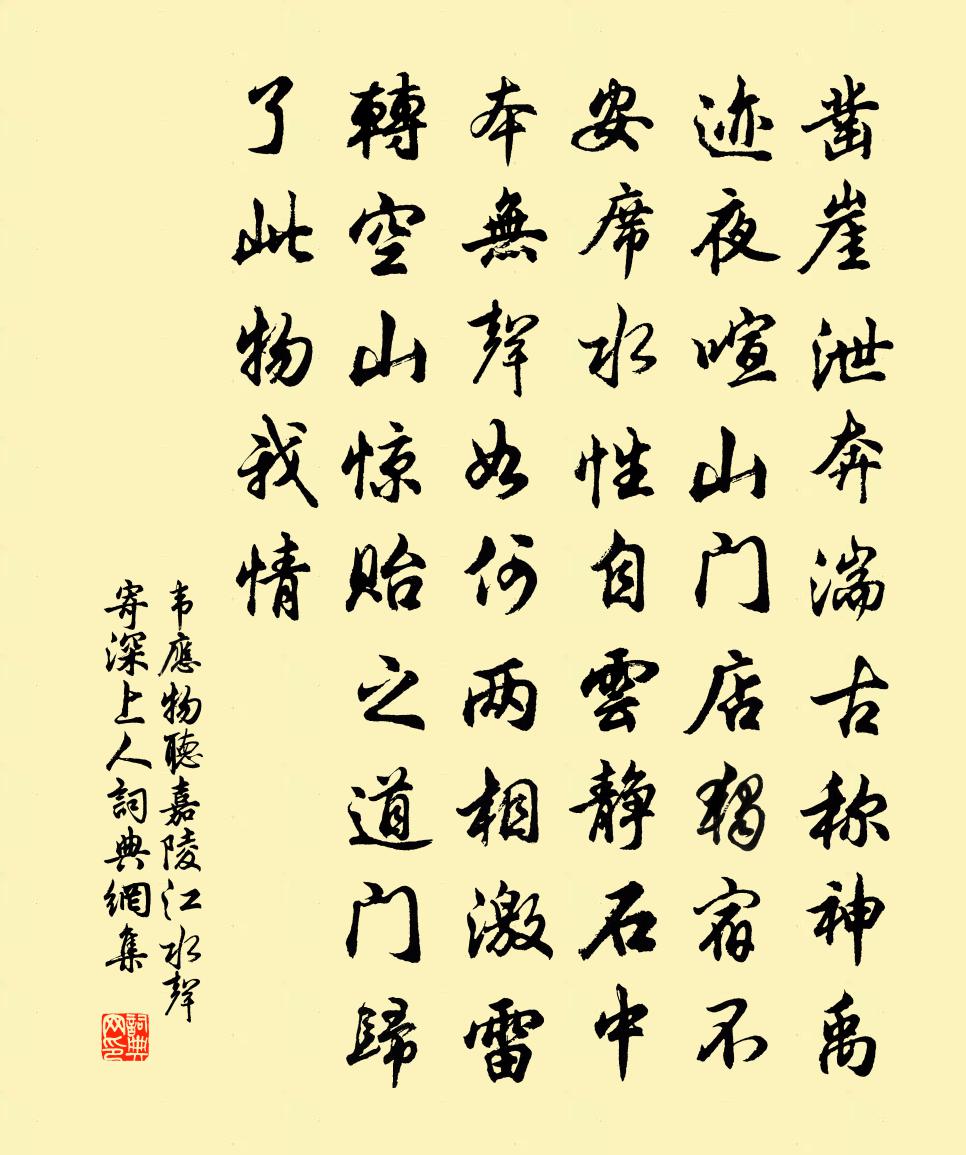 凿崖泄奔湍古称神禹
迹夜喧山门店独宿不
安席水性自雲静石中
本無聲如何两相激雷
轉空山惊贻之道门歸
了此物我情
韦應物聽嘉陵江水聲
寄深上人詞典網集
詞典网印